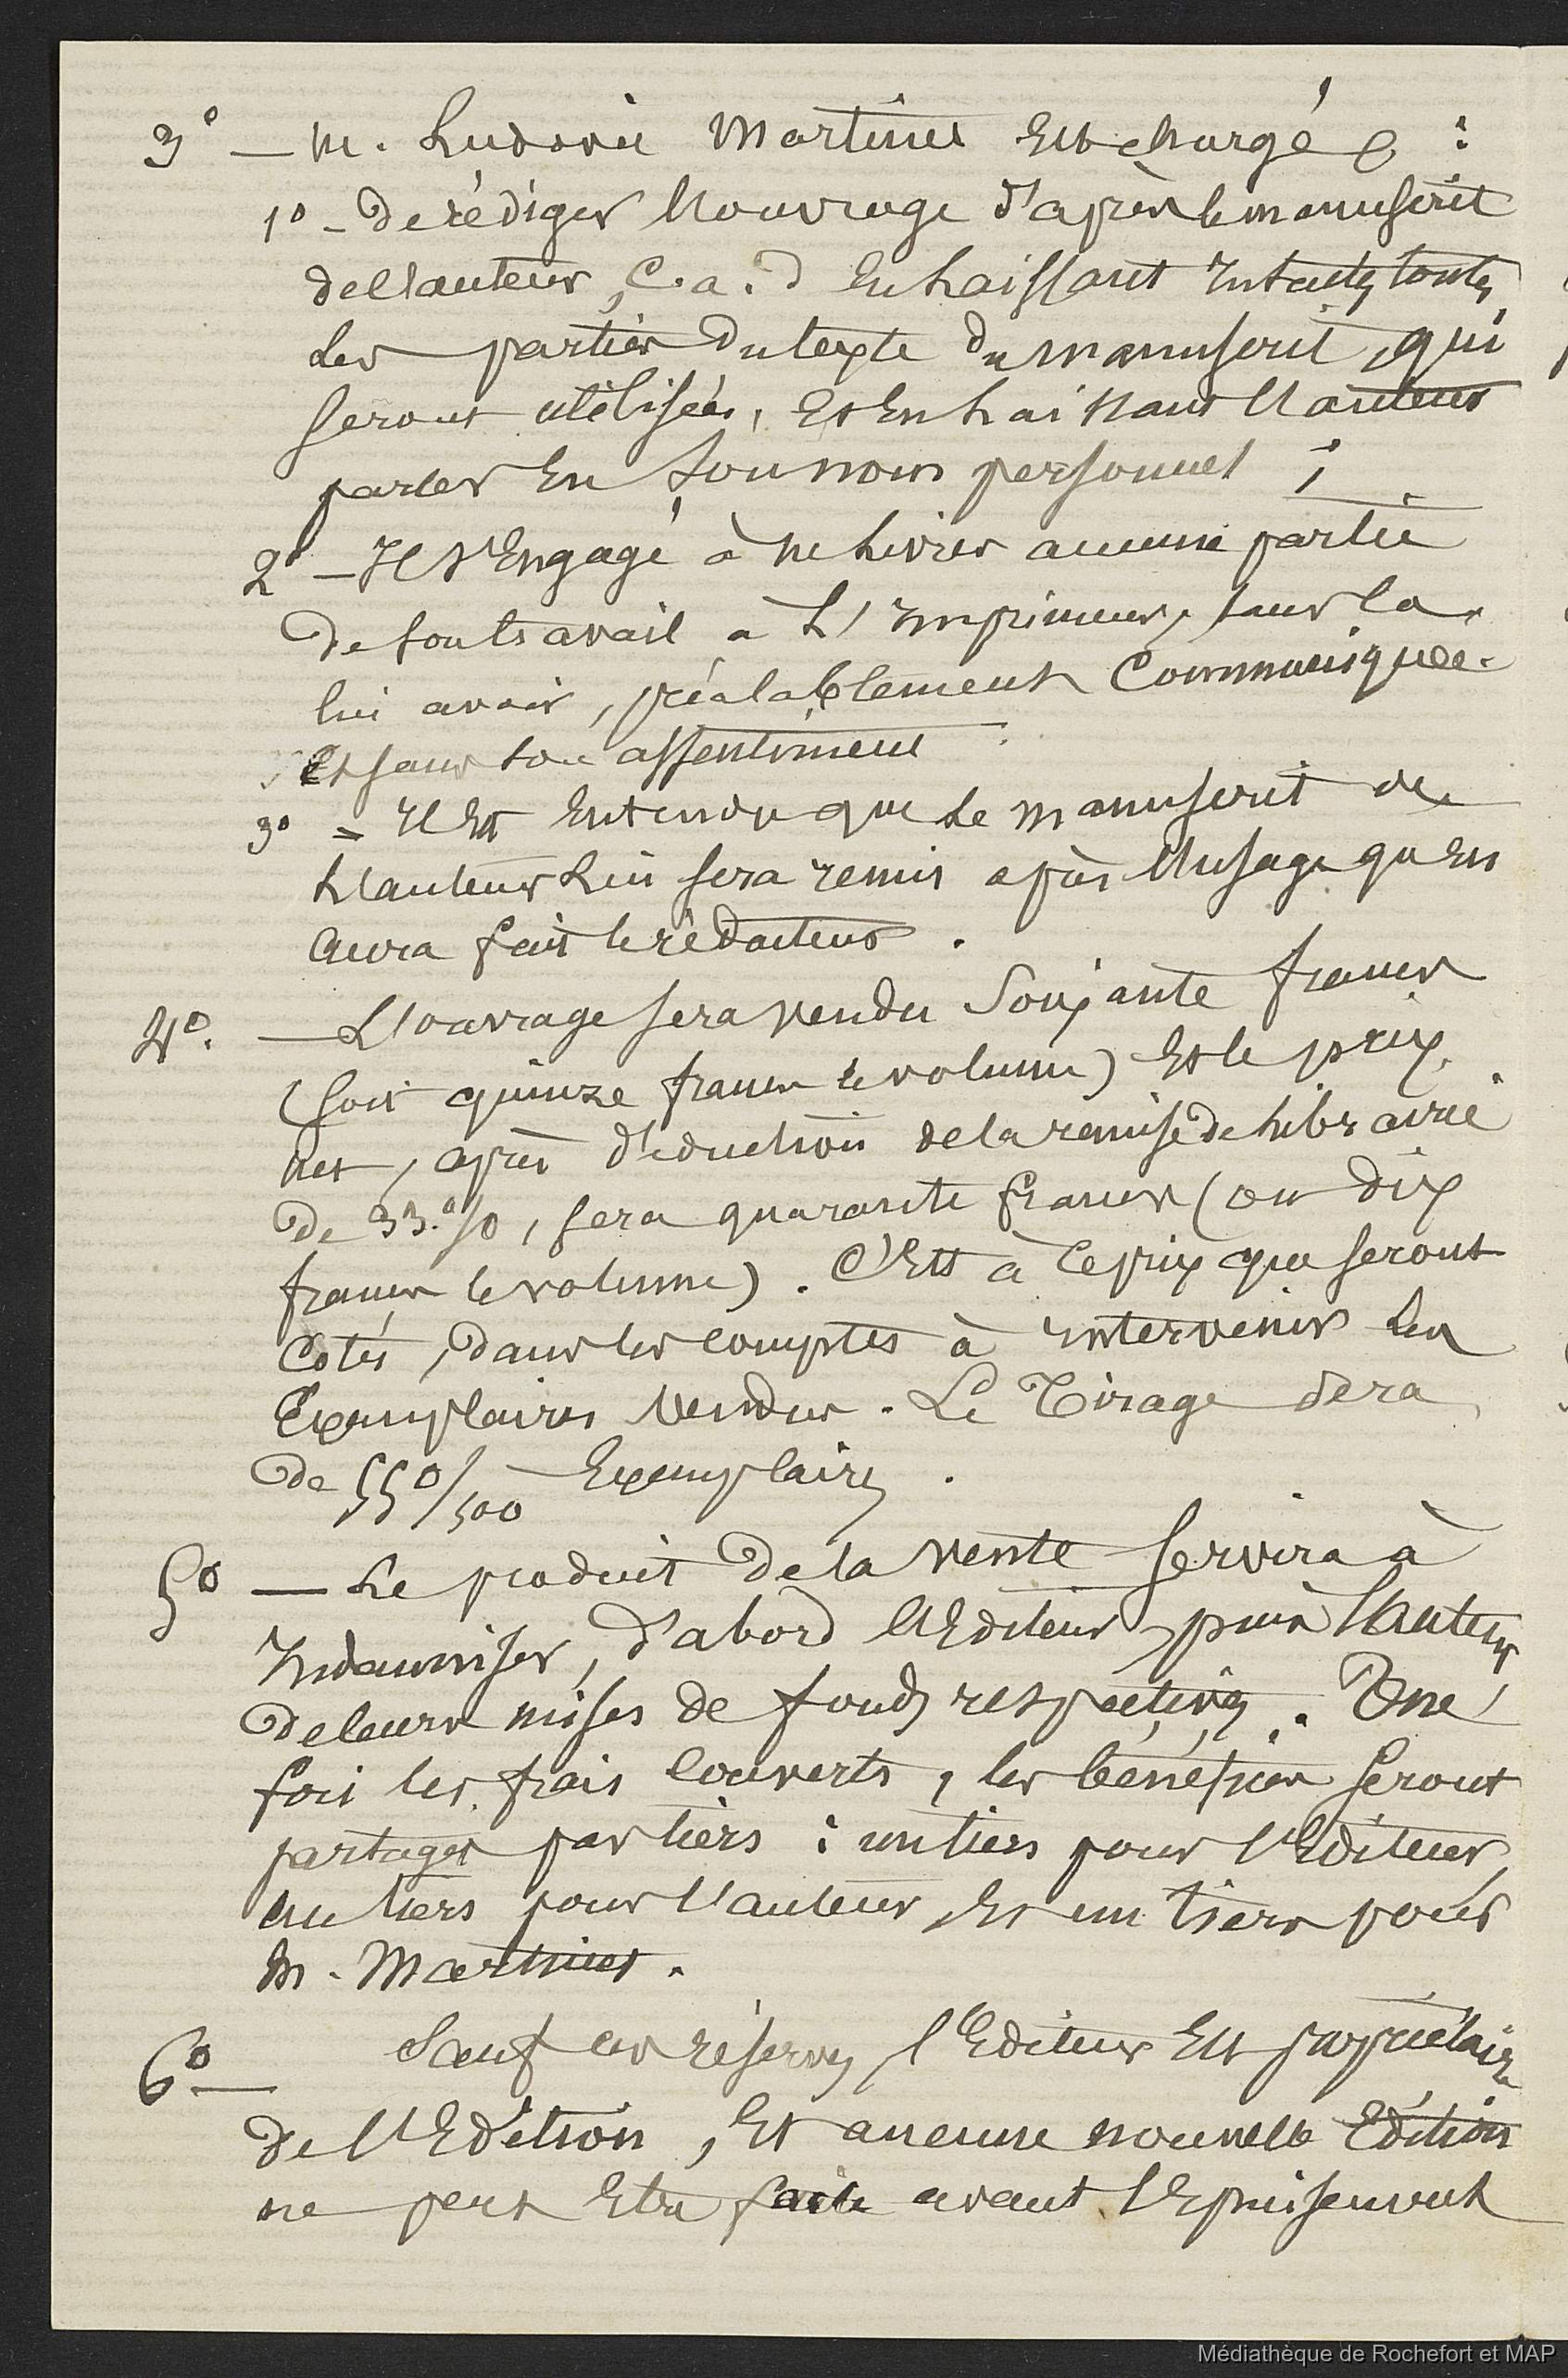 3° — M. Ludovic Martinet Est chargé :
1° - De rédiger l'ouvrage d'après le manuscrit
de l'auteur, C. a. d En Laissant Intactes toutes
Les parties du texte du manuscrit, qui
seront utilisées, Et En Laissant l'auteur
parler En son nom personnel ;
2° — Il s'Engage à ne Livrer aucune partie
De son travail à L'Imprimeur, sans la
lui avoir, préalablement Communiquée
Et sans son assentiment.
3° = Il Est Entendu que Le manuscrit de
L'auteur Lui sera remis après l'usage qu'En
Aura fait le rédacteur.
4°. — L'ouvrage sera vendu Soixante francs
(soit quinze francs le volume) Et le prix
net, après déduction de la remise de Librairie
De 33.%, sera quarante francs (ou dix
francs le volume). C'Est à Ce prix que seront
Cotés, dans les comptes à Intervenir Les
Exemplaires Vendus. Le Tirage Sera
De 550/500 Exemplaires.
5° — Le produit De la vente servira à
Indemniser, d'abord l'Editeur, puis l'Auteur
De leurs mises de fonds respectives. Une
fois les frais Couverts, les bénéfices seront
partagés par tiers : un tiers pour l'Editeur,
un tiers pour l'auteur, Et un tiers pour
M. Martinet.
6° — Sauf ces réserves, l'Editeur Est propriétaire
De l'Edition, Et aucune nouvelle Edition
ne peut Etre faite avant l'Epuisement
Médiathèque de Rochefort et MAP